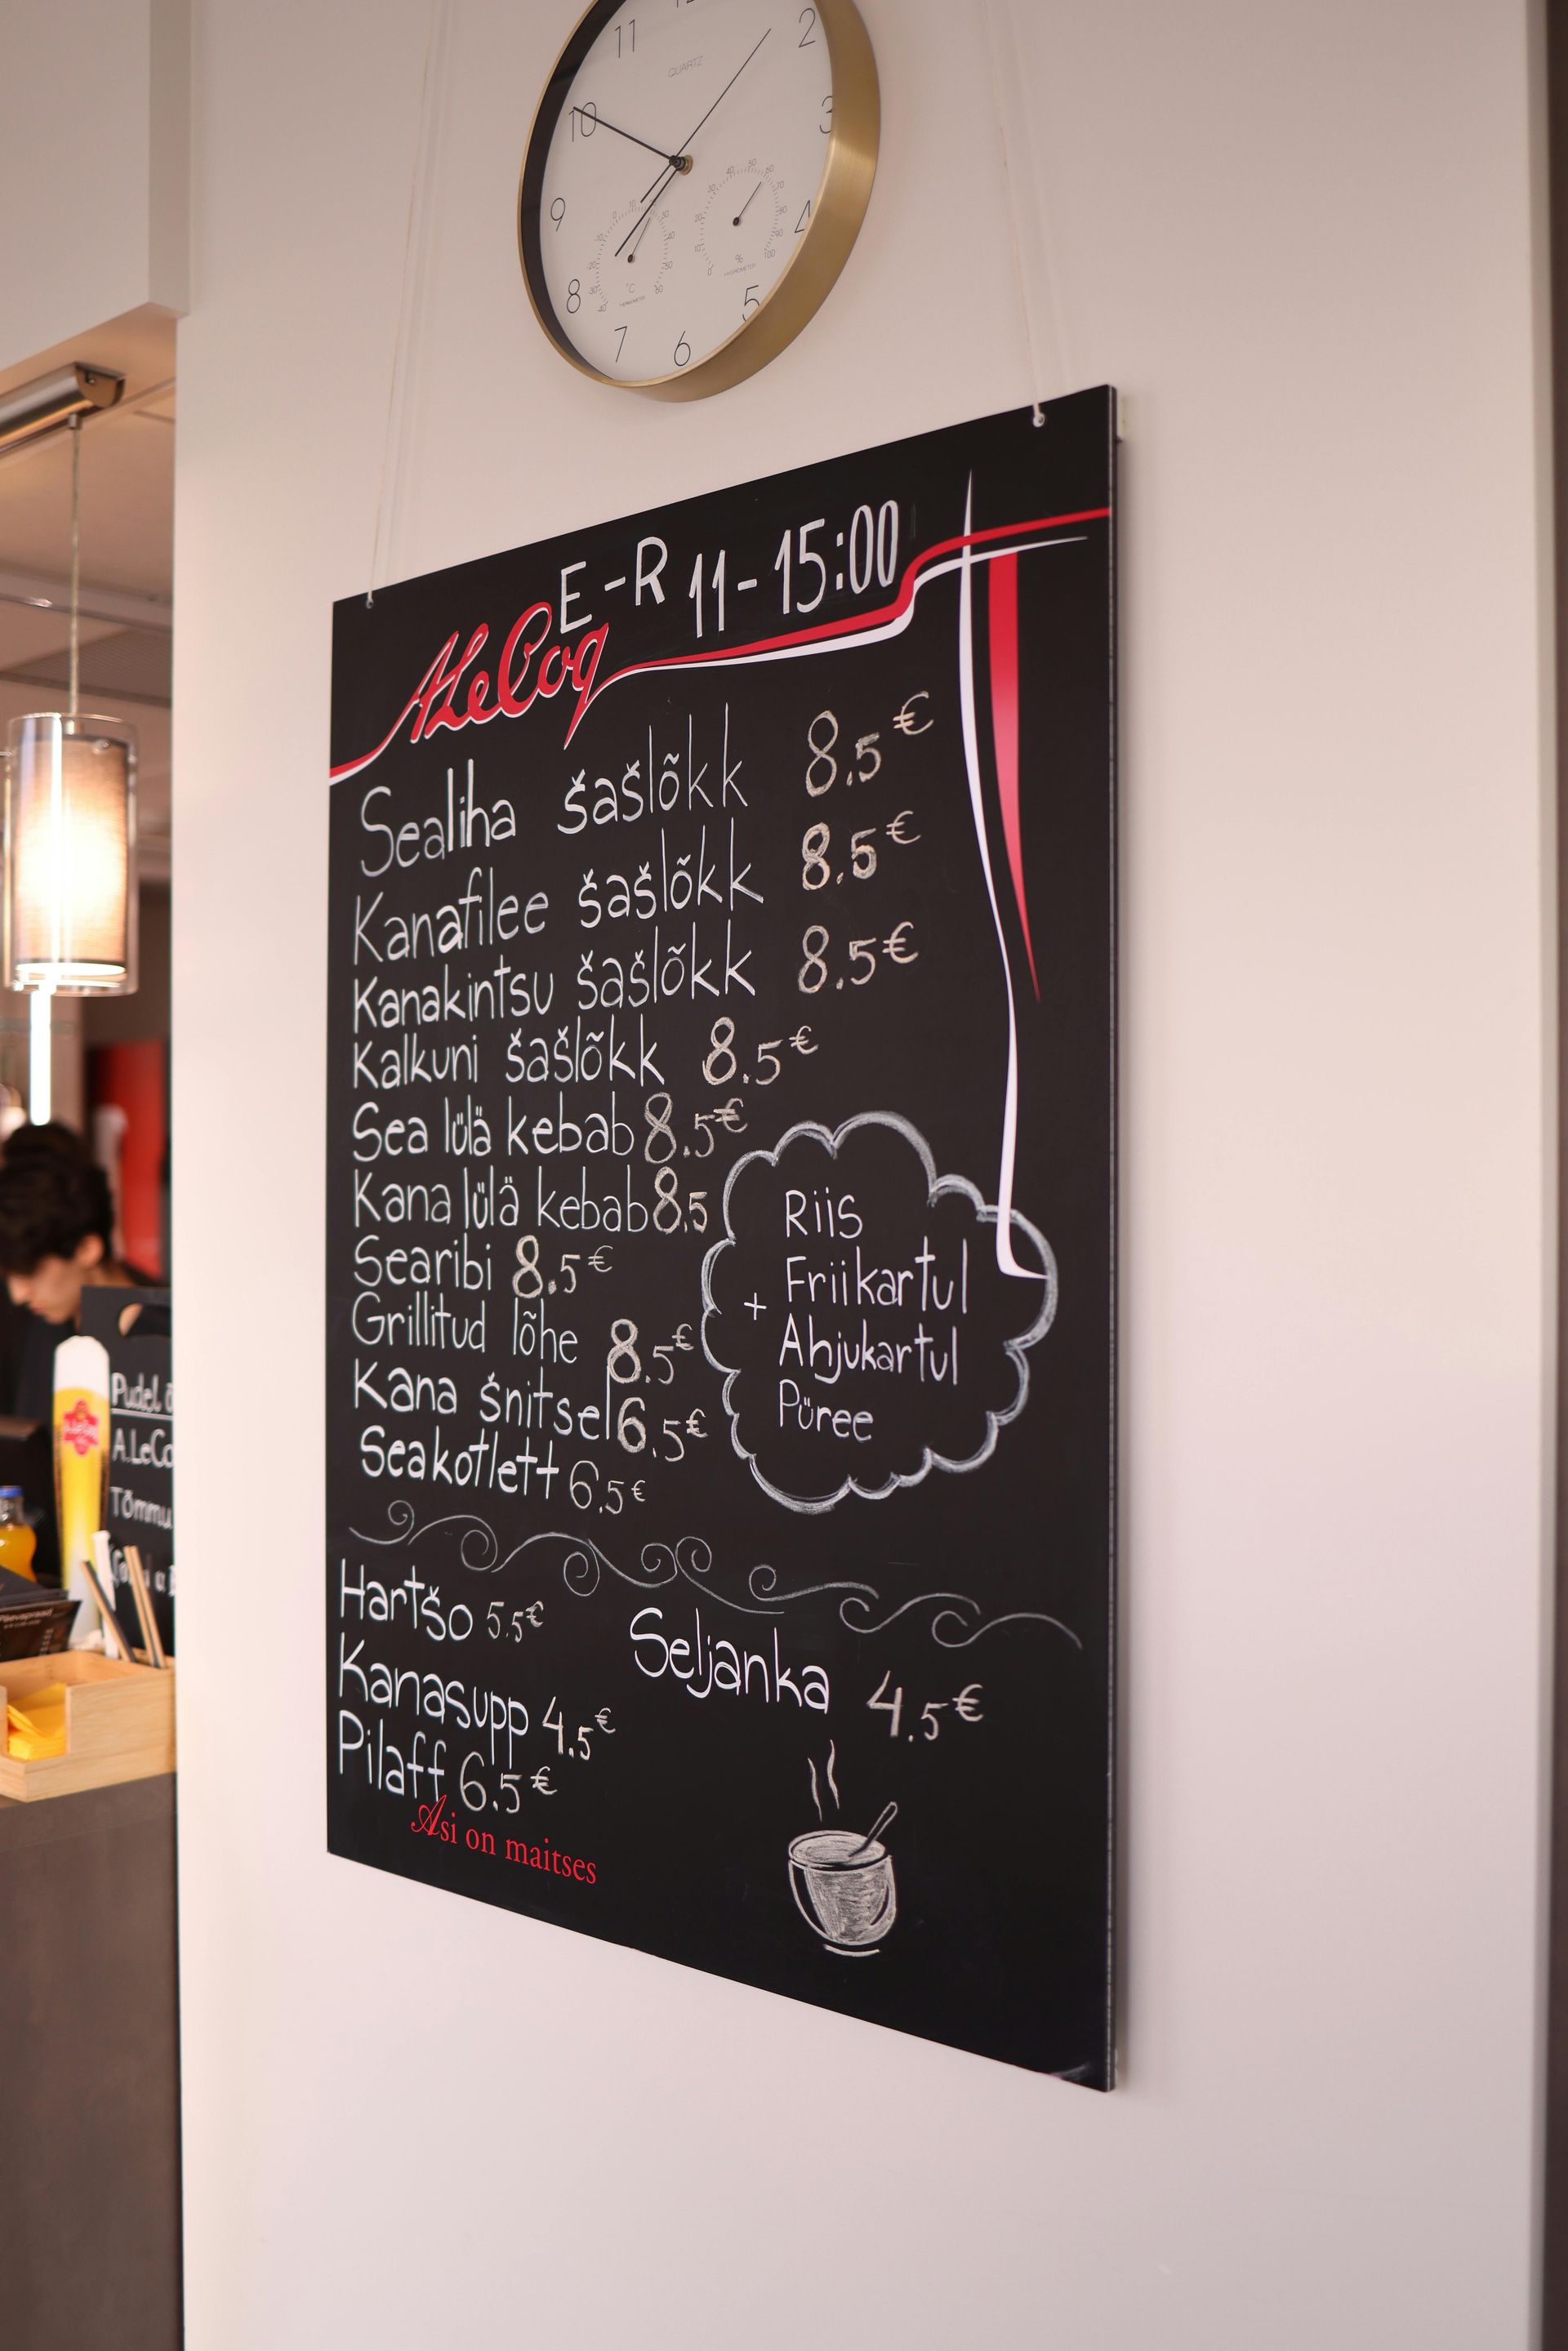 11
2
10
3
QUARTZ
9
4
8
5
7
6
°C
%
E-R 11-15:00
A.LeCoq
Sealiha šašlõkk 8.5€
Kanafilee šašlõkk 8.5€
Kanakintsu šašlõkk 8.5€
Kalkuni šašlõkk 8.5€
Sea lülä kebab 8.5€
Kana lülä kebab 8.5
Searibi 8.5€
Grillitud lõhe 8.5€
Kana šnitsel 6.5€
Seakotlett 6.5€
Riis
+ Friikartul
Ahjukartul
Püree
Hartšo 5.5€
Kanasupp 4.5€
Pilaff 6.5€
Seljanka 4.5€
Asi on maitses
Pudel õ
A.LeCo
Tõmmu